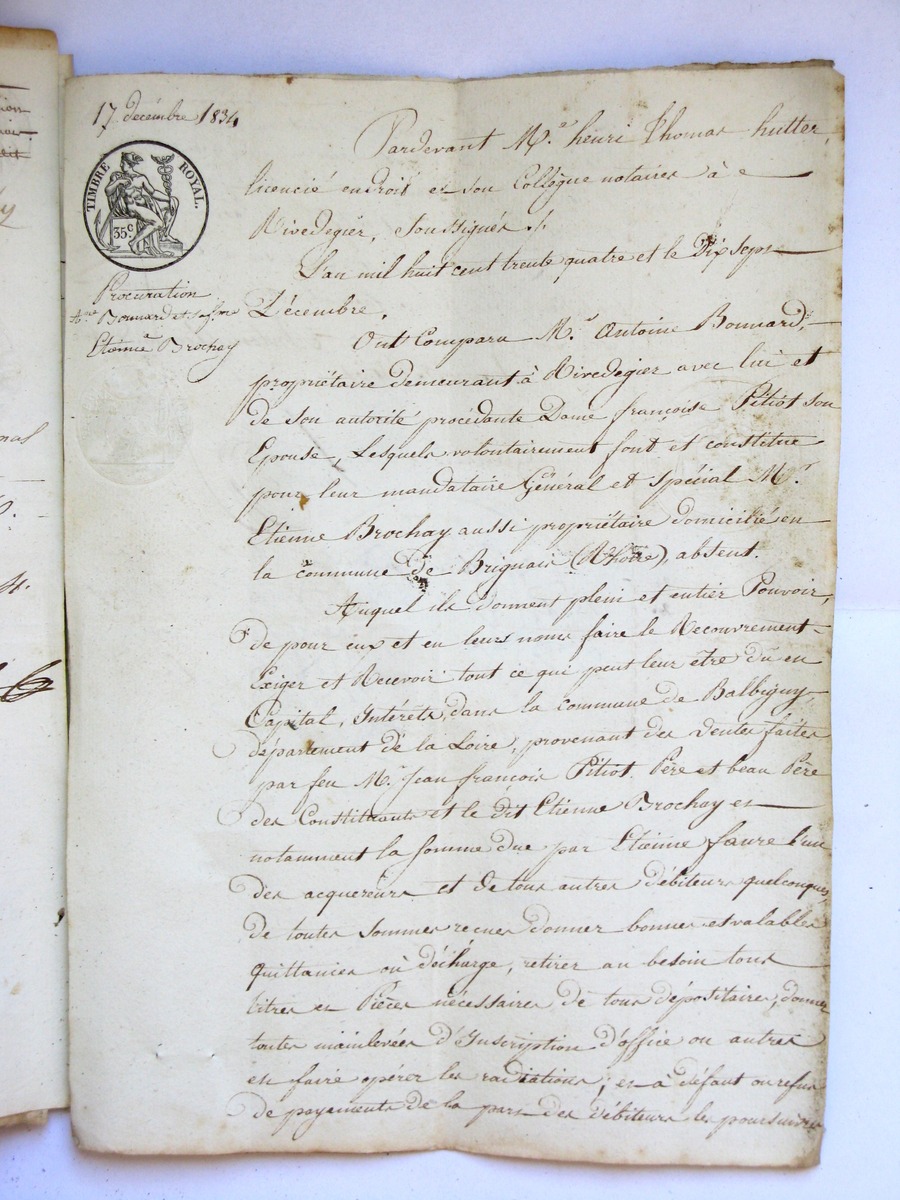 17 décembre 1834
TIMBRE ROYAL.
35 c.
Procuration
Ane Bonnard et sa fme
Etienne Brochay
Pardevant Me. henri Thomas hutter,
licencié en droit et son Collègue notaires à
Rivedegier, soussignés ./.
L'an mil huit cent trente quatre et le Dix sept
Décembre,
Ont Comparu Mr. Antoine Bonnard,
propriétaire demeurant à Rivedegier avec lui et
de son autorité procédante Dame françoise Pitiot son
Epouse, Lesquels volontairement font et constitue
pour leur mandataire Général et spécial Mr.
Etienne Brochay aussi propriétaire domicilié en
la commune de Brignais (Rhône), absent.
Auquel ils donnent plein et entier Pouvoir,
de pour eux et en leurs noms faire le Recouvrement
Exiger et Recevoir tout ce qui peut leur être dû en
Capital, Intérets, dans la commune de Balbigny,
département de la Loire, provenant des Ventes faites
par feu Mr. Jean françois Pitiot Père et beau Père
des Constituants et le dit Etienne Brochay et
notamment la somme due par Etienne faure l'un
des acquereurs et de tous autres débiteurs quelconques,
de toutes sommes recues donner bonnes et valables
quittances où décharge, retirer au besoin tous
titres et Pièces nécessaires de tous dépositaires, donner
toutes mainlevées d'Inscription d'office ou autres
en faire opérer les radiations; et à défaut ou refus
de payements de la part des débiteurs les poursuivre